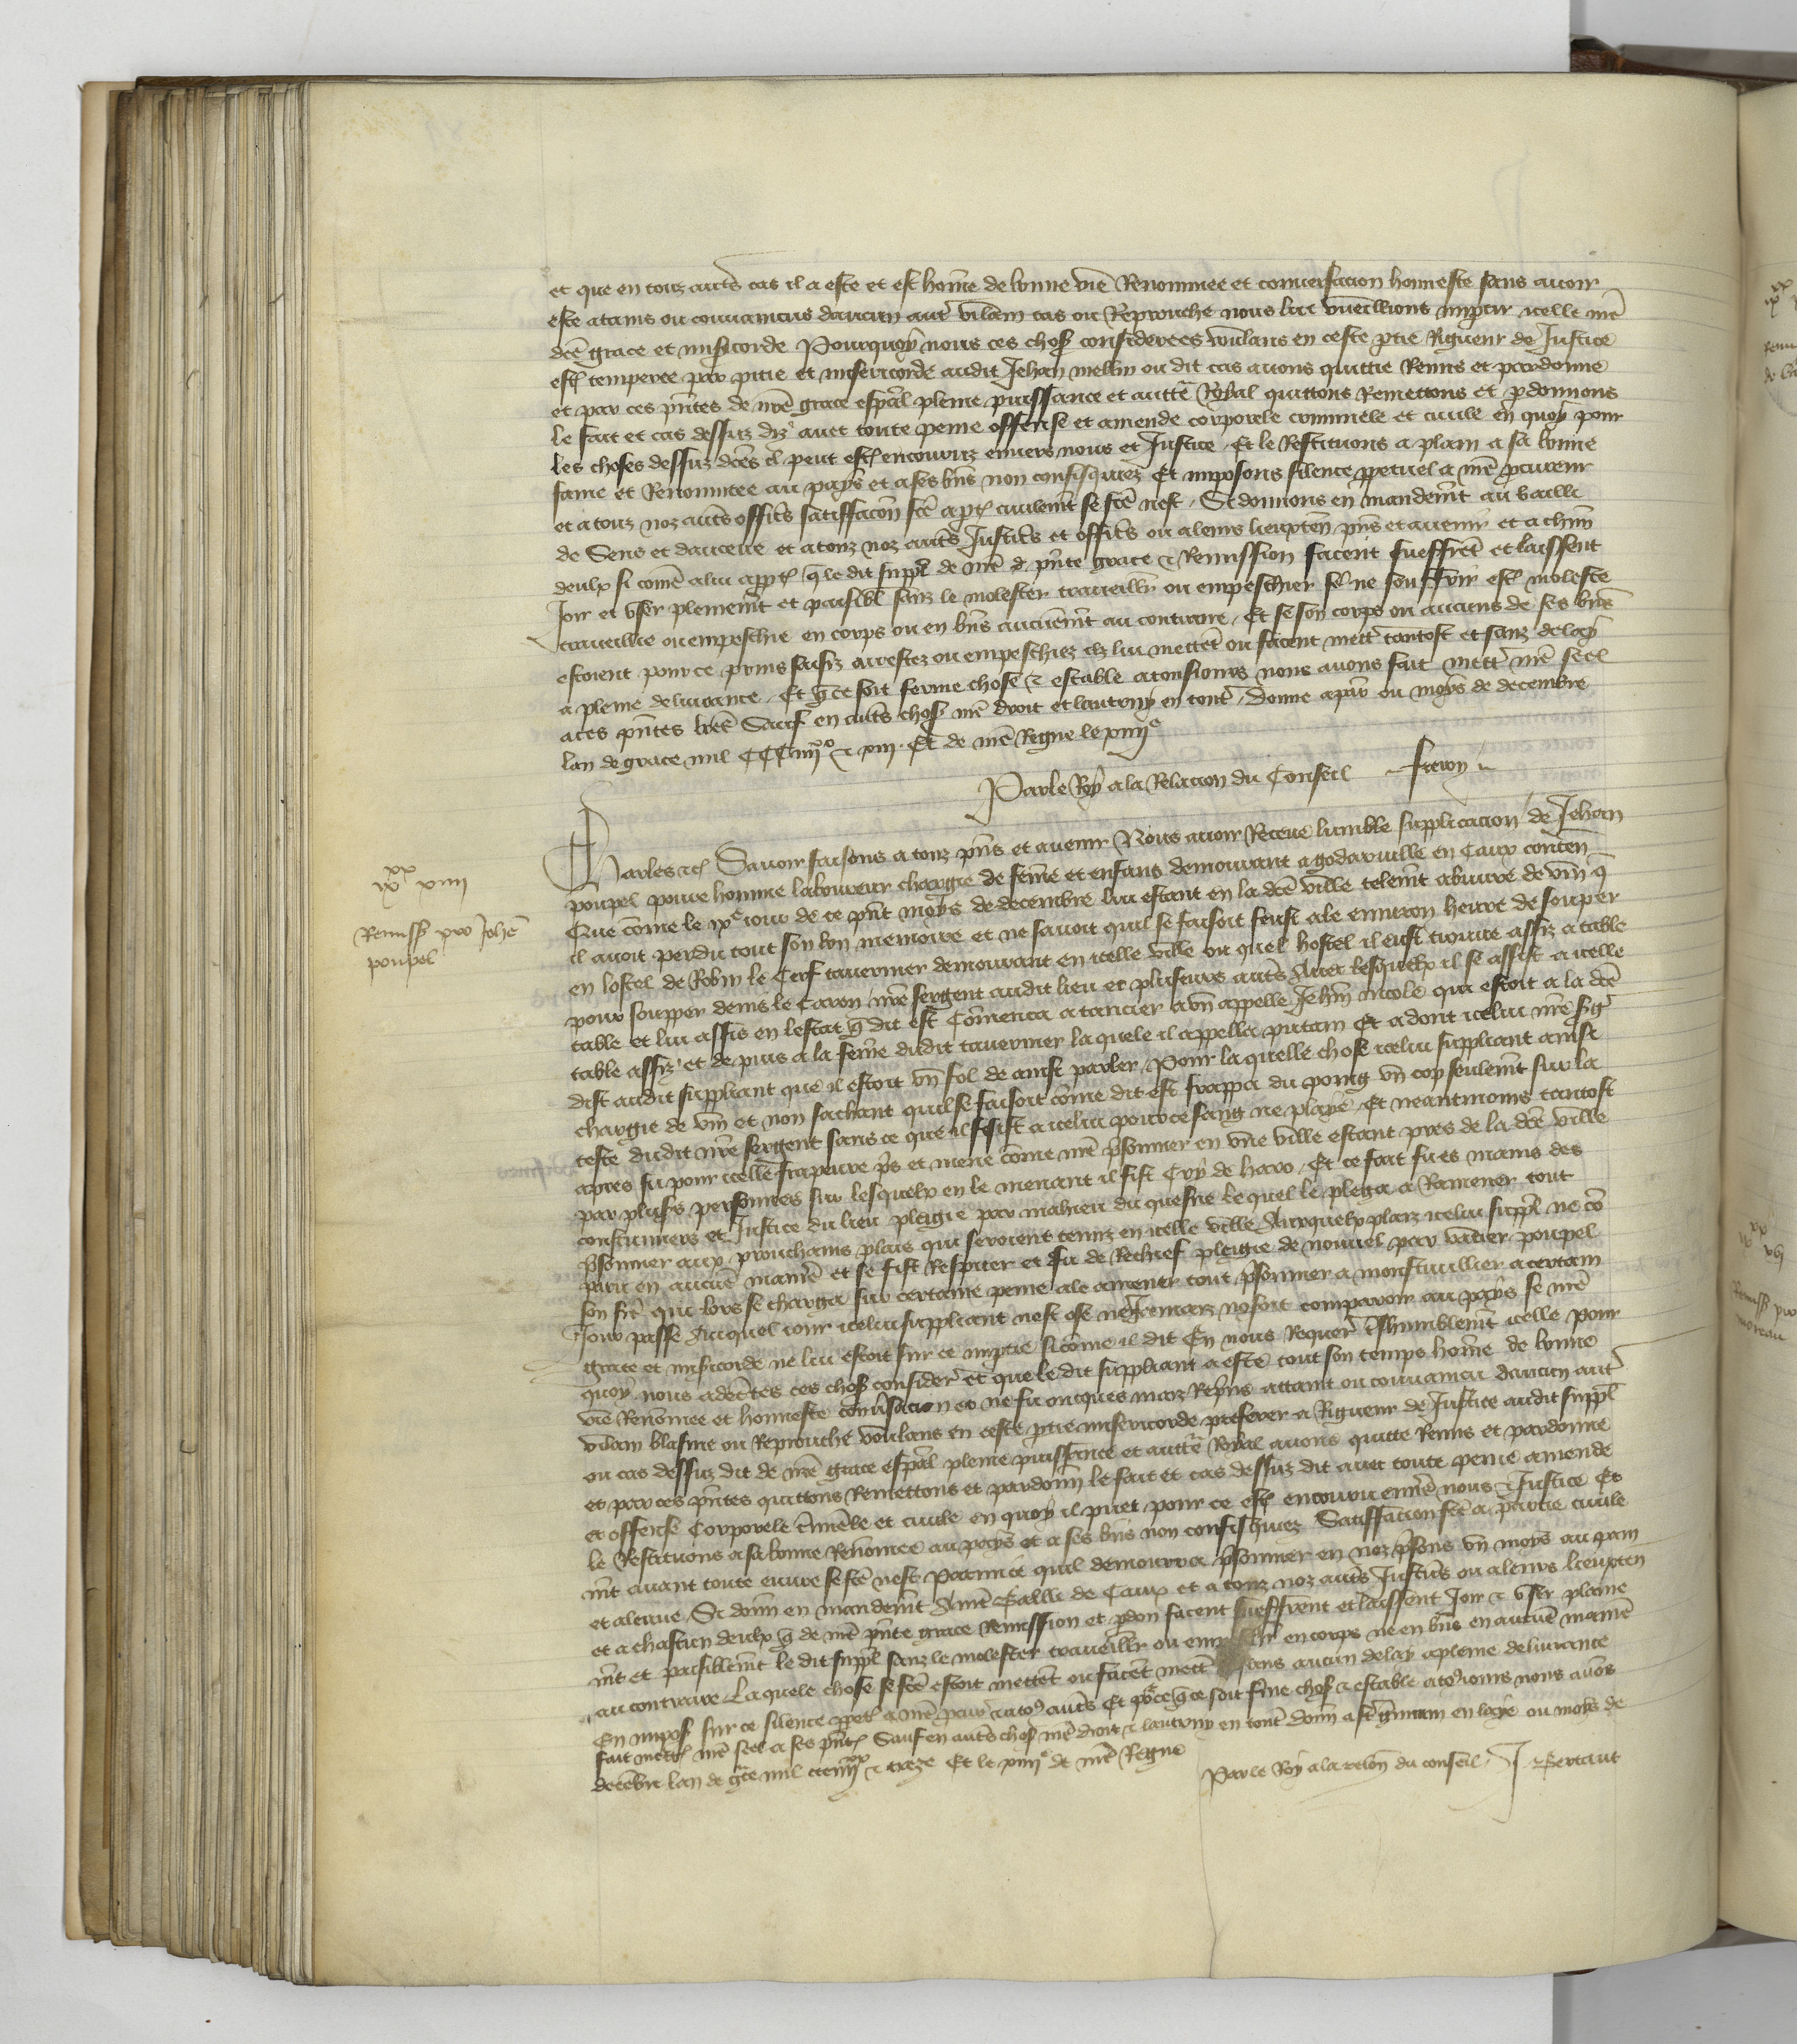 et que en touz autres cas il a este et est home de bonne vie Renommee et conversacion honneste sans avoir
este atains ou convaincus daucun autre villain cas ou Reprouche nous lui vueillions impartir icelle nre
dce grace et misicorde Pourquoy nous ces choses considerees voulans en ceste ptie Rigueur de Justice
estre temperee par pitie et misericorde audit Jehan mellin ou dit cas avons quittie Remis et pardonne
et par ces pntes de nre grace especial pleine puissance et auctte Royal quittons Remettons et pdonnons
le fait et cas dessuz diz avec toute peine offense et amende corporele criminele et civile en quoy pour
les choses dessuz dces il peut estre encouruz envers nous et Justice Et le Restituons a plain a sa bonne
fame et Renommee au pays et a ses biens non confisquiez Et imposons silence ppetuel a nre pcureur
et a touz noz autres officiers satiffacon fce a ptie civilemt se fce nest Si donnons en mandemt au bailli
de Sens et daucerre et a touz noz autres Justiciers et officiers ou a leurs lieuxten pns et avenir et a chun
deulx si come a lui apptendra que le dit suppl de nre pnte grace et Remission facent sueffrent et laissent
Joir et user plainemt et paisiblemt sanz le molester travaillier ou empeschier ne souffrir estre moleste
travaillie ou empeschie en corps ou en biens aucunemt au contraire Et se son corps ou aucuns de ses biens
estoient pour ce prins saisiz arrestez ou empeschiez les lui mettent ou facent mettre tantost et sanz delay
a pleine delivrance Et que ce soit ferme chose et estable a tousjours nous avons fait mettre nre seel
a ces pntes lres Sauf en autres choses nre droit et lautruy en toutes Donne a par ou moys de decembre
lan de grace mil CCC iiiixx et xiii Et de nre Regne le xiiiie
Par le Roy a la Relacion du Conseil Freron
ixxx xiiii
Remiss pro Johe
poupel
Charles etc Savoir faisons a touz pns et avenir Nous avoir Receue lumble supplicacion de Jehan
poupel povre homme laboureur chargie de feme et enfans demourant a godarville en Caux conten
Que come le ixe jour de ce pnt moys de decembre lui estant en la dce ville telemt abuvre de vin q
il avoit perdu tout son bon memoire et ne savoit quil se faisoit feust ale environ heure de souper
en lostel de Robin le Cerf tavernier demourant en icelle ville ou quel hostel il eust trouve assiz a table
pour soupper denis le Caron nre sergent audit lieu et plusieurs autres Avec lesquelx il se assist a icelle
table et lui assis en lestat que dit est Comenca a tancier a un appelle Jehan nicole qui estoit a la dce
table assiz et depuis a la feme dudit tavernier la quele il appella putain Et adont icelui nre sergent
dist audit suppliant que il estoit un fol de ainsi parler Pour la quelle chose icelui suppliant ainsi
chargie de vin et non sachant quil se faisoit come dit est frappa du poing un cop seulemt sur la
teste dudit nre sergent sans ce que il feist a icelui pour ce sang ne playe Et neantmoins tantost
apres fu pour icelle frapeure pris et mene come nre psonnier en une ville estant pres de la dce ville
par plusrs personnes sur lesquelx en le menant il fist Cry de haro Et ce fait fu es mains des
coustumiers et Justice du lieu pleigie par mahieu du quesne le quel le plega a Ramener tout
psonnier aux prouchains plais qui seroient tenuz en icelle ville Auxquelx plaiz icelui suppl ne co
paru en aucune maniere et se fist Respiter et fu de Rechief pleigie de nouvel par vautier poupel
son frere qui lors se charga sur certaine peine de le amener tout psonnier a monstiviller a certain
Jour passe Auquel jour icelui suppliant nest ose ne Jemaiz noseroit comparoir au pays se nre
grace et misicorde ne lui estoit sur ce imptie sicome il dit En nous Requerant treshumblemt icelle Pour
quoy nous adcertes ces choses considerees et que le dit suppliant a este tout son temps home de bonne
vie Renomee et honneste conversacion et ne fu oncques maiz Repris attaint ou convaincu daucun autre
vilain blasme ou Reprouche voulans en ceste ptie misericorde preferer a Rigueur de Justice audit suppl
ou cas dessuz dit de nre grace especial pleine puissance et auctte Royal avons quitte Remis et pardonne
et par ces pntes quittons Remettons et pardonn le fait et cas dessuz dit avec toute peine amende
et offense Corporele criminele et civile en quoy il puet pour ce estre encouru envers nous et Justice Et
le Restituons a sa bonne Renomee au pays et a ses biens non confisquiez Satiffacion fce a partie civile
mt avant toute euvre se fce nest Parmi ce quil demourra psonnier en noz psons un moys au pain
et a leaue Si donn en mandemt A nre Bailli de Caux et a touz noz autres Justiciers ou a leurs lieuxten
et a chascun deulx que de nre pnte grace Remission et pdon facent sueffrent et laissent Joir et user plaine
mt et paisiblemt le dit suppl sanz le molester travaillier ou empeschier en corps ne en biens en aucune maniere
au contraire La quele chose se fce estoit mettent ou facent mettre sans aucun delay a pleine delivrance
En impos sur ce silence ppetuel a nre pcureur et a touz autres Et pour ce que ce soit ferme chose et estable a tousjours nous avons
fait mettre nre seel a ces pntes Sauf en autres choses nre droit et lautruy en toutes donn a st germain en laye ou moys de
decembre lan de grace mil ccc iiiixx et treze Et le xiiiie de nre Regne
Par le Roy a la relon du conseil J Bertaut